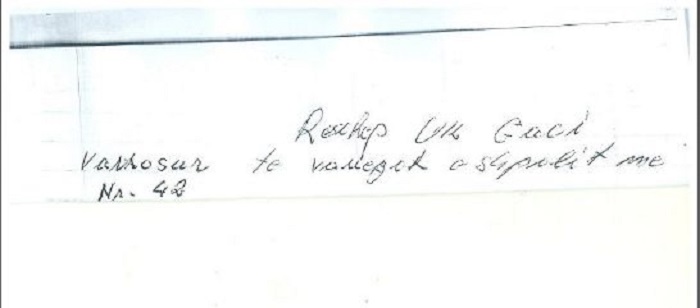 Rexhep Uk Gaci
Varrosur te varrezat e shpalit me
Nr. 42